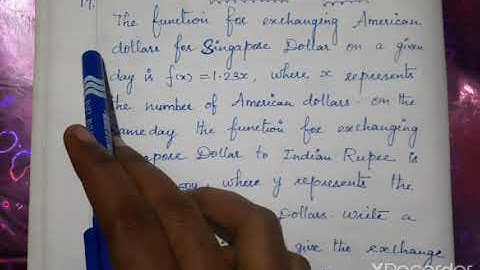 17.
The function for exchanging American
dollars for Singapore Dollar on a given
day is f(x) = 1.23x, where x represents
the number of American dollars. On the
same day the function for exchanging
Dollar to Indian Rupee is
where y represents the
Dollars. Write a
give the exchange